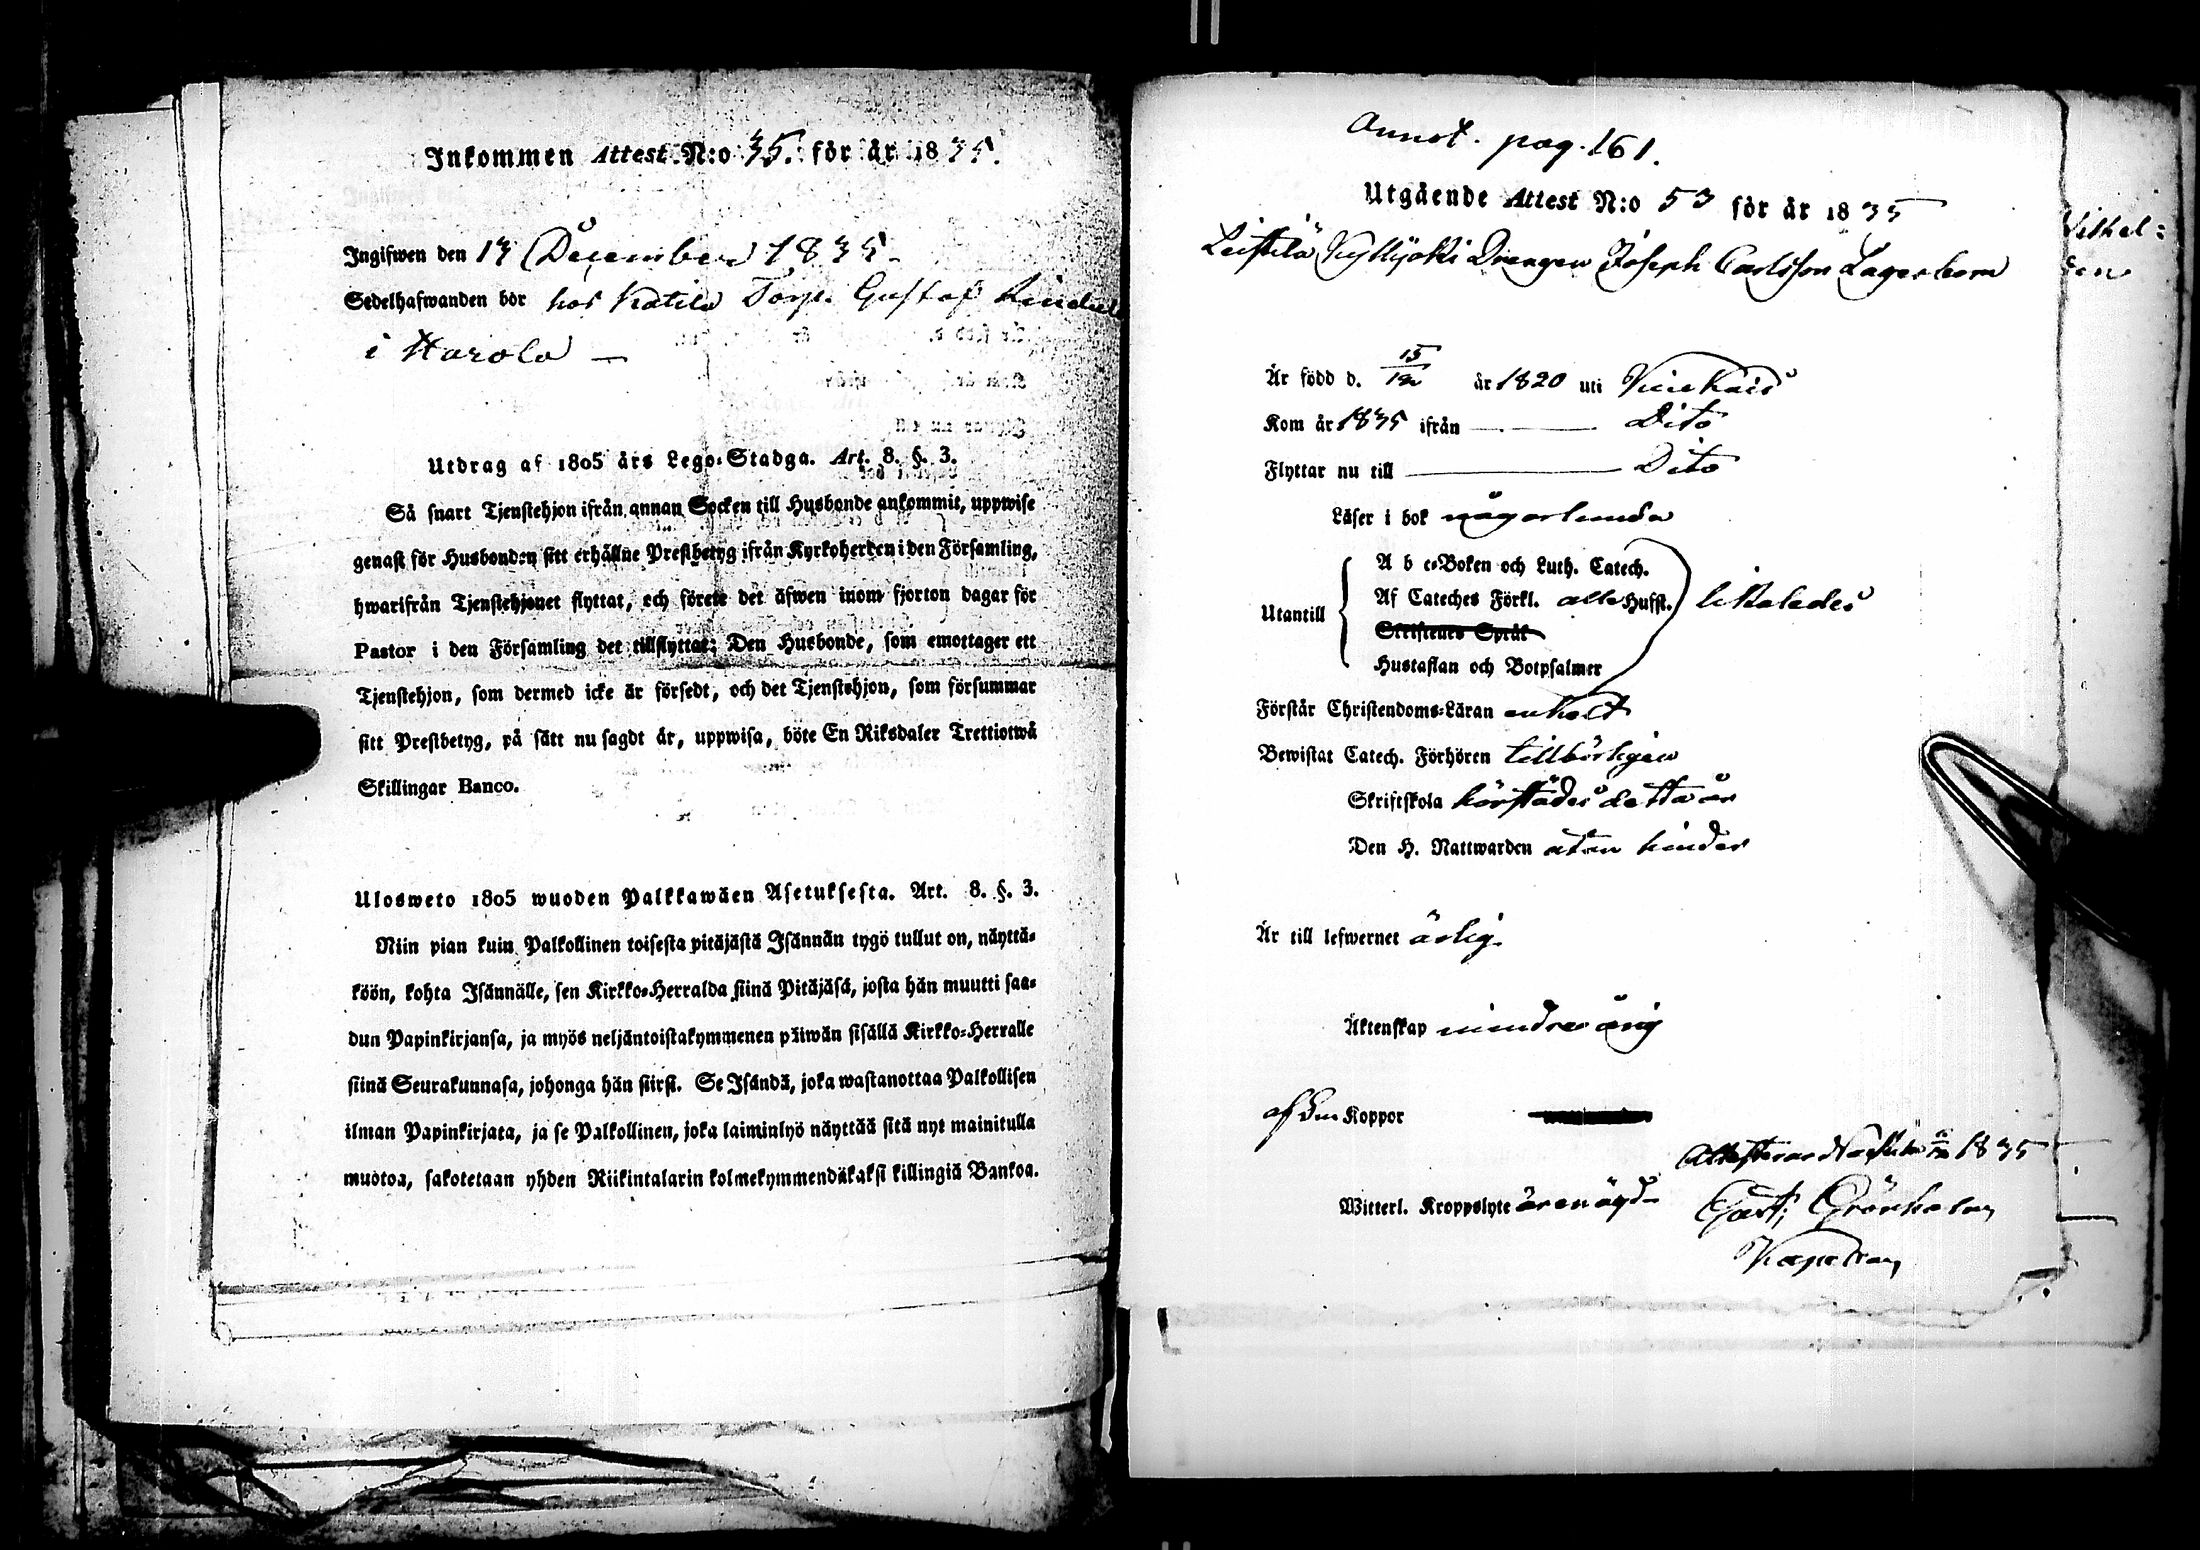 Inkommen Attest N:o 35. för år 1835.
Ingifwen den 17 December 1835.
Sedelhafwanden bör hos Katila Torp. Gustaf
i Harola
Utdrag af 1805 års Lego-Stadga. Art. 8. §. 3.
Så snart Tjenstehjon ifrån annan Socken till Husbonde ankommit, uppwise
genast för Husbonden sitt erhållne Prestbetyg ifrån Kyrkoherden i den Församling,
hwarifrån Tjenstehjonet flyttat, och förete det äfwen inom fjorton dagar för
Pastor i den Församling det tillflyttat; Den Husbonde, som emottager ett
Tjenstehjon, som dermed icke är försedt, och det Tjenstehjon, som försummar
sitt Prestbetyg, på sätt nu sagdt är, uppwisa, böte En Riksdaler Trettiotwå
Skillingar Banco.
Ulosweto 1805 wuoden Palkkawäen Asetuksesta. Art. 8. §. 3.
Niin pian kuin Palkollinen toisesta pitäjästä Isännän tygö tullut on, näyttä-
köön, kohta Isännälle, sen Kirkko-Herralda siinä Pitäjäsä, josta hän muutti saa-
dun Papinkirjansa, ja myös neljäntoistakymmenen päiwän sisällä Kirkko-Herralle
siinä Seurakunnasa, johonga hän siirsi. Se Isändä, joka wastanottaa Palkollisen
ilman Papinkirjata, ja se Palkollinen, joka laiminlyö näyttää sitä nyt mainitulla
muotoa, sakotetaan yhden Riikintalarin kolmekymmendäkaksi killingiä Bankoa.
Annot. pag. 161.
Utgående Attest N:o 53 för år 1835
Leistilä Kyllijoki Drengen Joseph Carlsson Lagerbom
Är född d. 15/12 år 1820 uti
Kom år 1835 ifrån Dito
Flyttar nu till Dito
Läser i bok någorlunda
A b c-Boken och Luth. Catech.
Utantill Af Cateches Förkl. alla Hufst. likaledes
Skriftenes Språk
Hustaflan och Botpsalmer
Förstår Christendoms-Läran enkelt
Bewistat Catech. Förhören tillbörligen
Skriftskola härstädes detta år
Den H. Nattwarden utan hinder
Är till lefwernet ärlig.
Äktenskap minderårig
Koppor
Attesterar 1835
Witterl. Kroppslyte
Grönholm
Kapellan